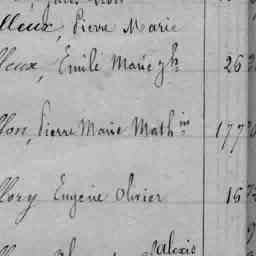 lleux, Pierre Marie
lleux, Emile Marie Jh 26
llon, Pierre Marie Mathin 177
llory Eugène Olivier 16
Alexis